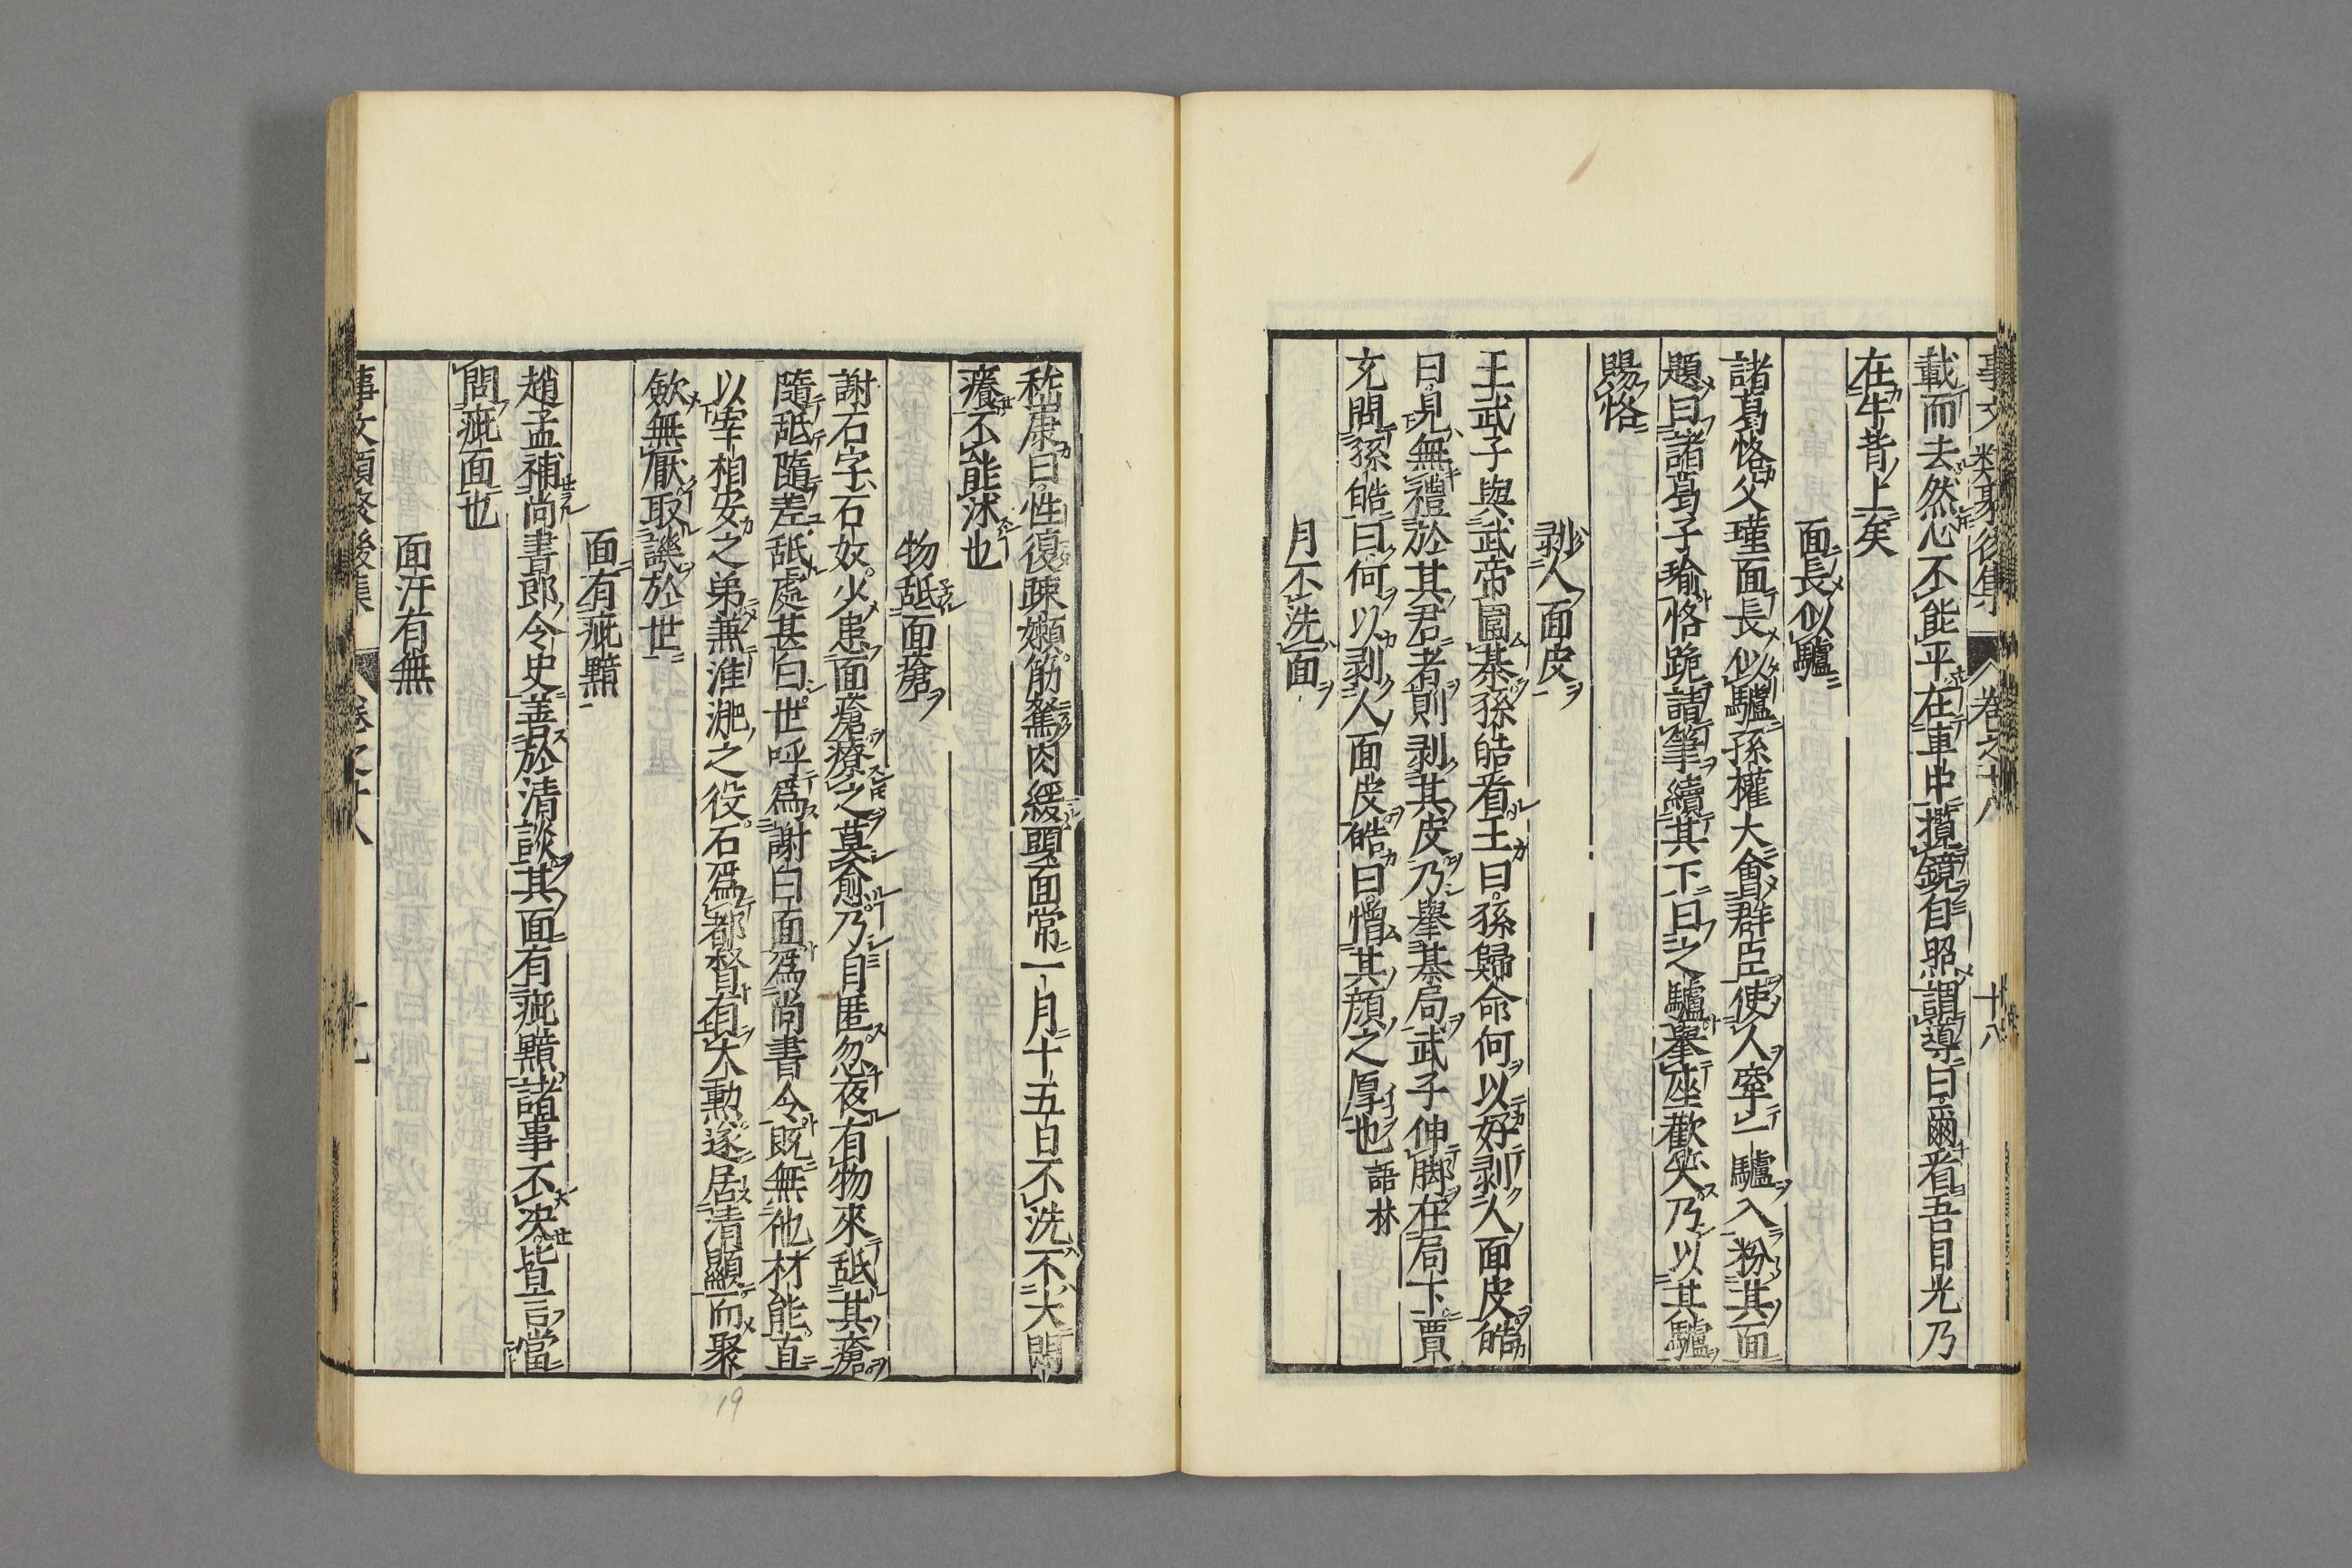 事文類聚後集 卷之十八 十八
載而去然心不能平在車中攬鏡自照謂導曰爾看吾目光乃
在牛背上矣
面長似驢
諸葛恪父瑾面長似驢孫權大會群臣使人牽一驢入粉其面
題曰諸葛子瑜恪跪請筆續其下曰之驢舉座歡笑乃以其驢
賜恪
剥人面皮
王武子與武帝圍棊孫皓看王曰孫歸命何以好剥人面皮皓
曰見無禮於其君者則剥其皮乃舉棊局武子伸脚在局下賈
充問孫皓曰何以剥人面皮皓曰憎其顔之厚也語林
月不洗面
嵇康曰性復疎嬾筋駑肉緩頭面常一月十五日不洗不大悶
癢不能沐也
物舐面瘡
謝石字石奴少患面瘡療之莫愈乃自匿忽夜有物來舐其瘡
隨舐隨差舐處甚白世呼爲謝白面爲尚書令既無他材能直
以宰相安之弟兼淮淝之役石爲都督有大勲遂居清顯而聚
歛無厭取譏於世
面有疵黯
趙孟補尚書郎令史善於清談其面有疵黯諸事不决皆言當
問疵面也
面汗有無
事文類聚後集 卷之十八